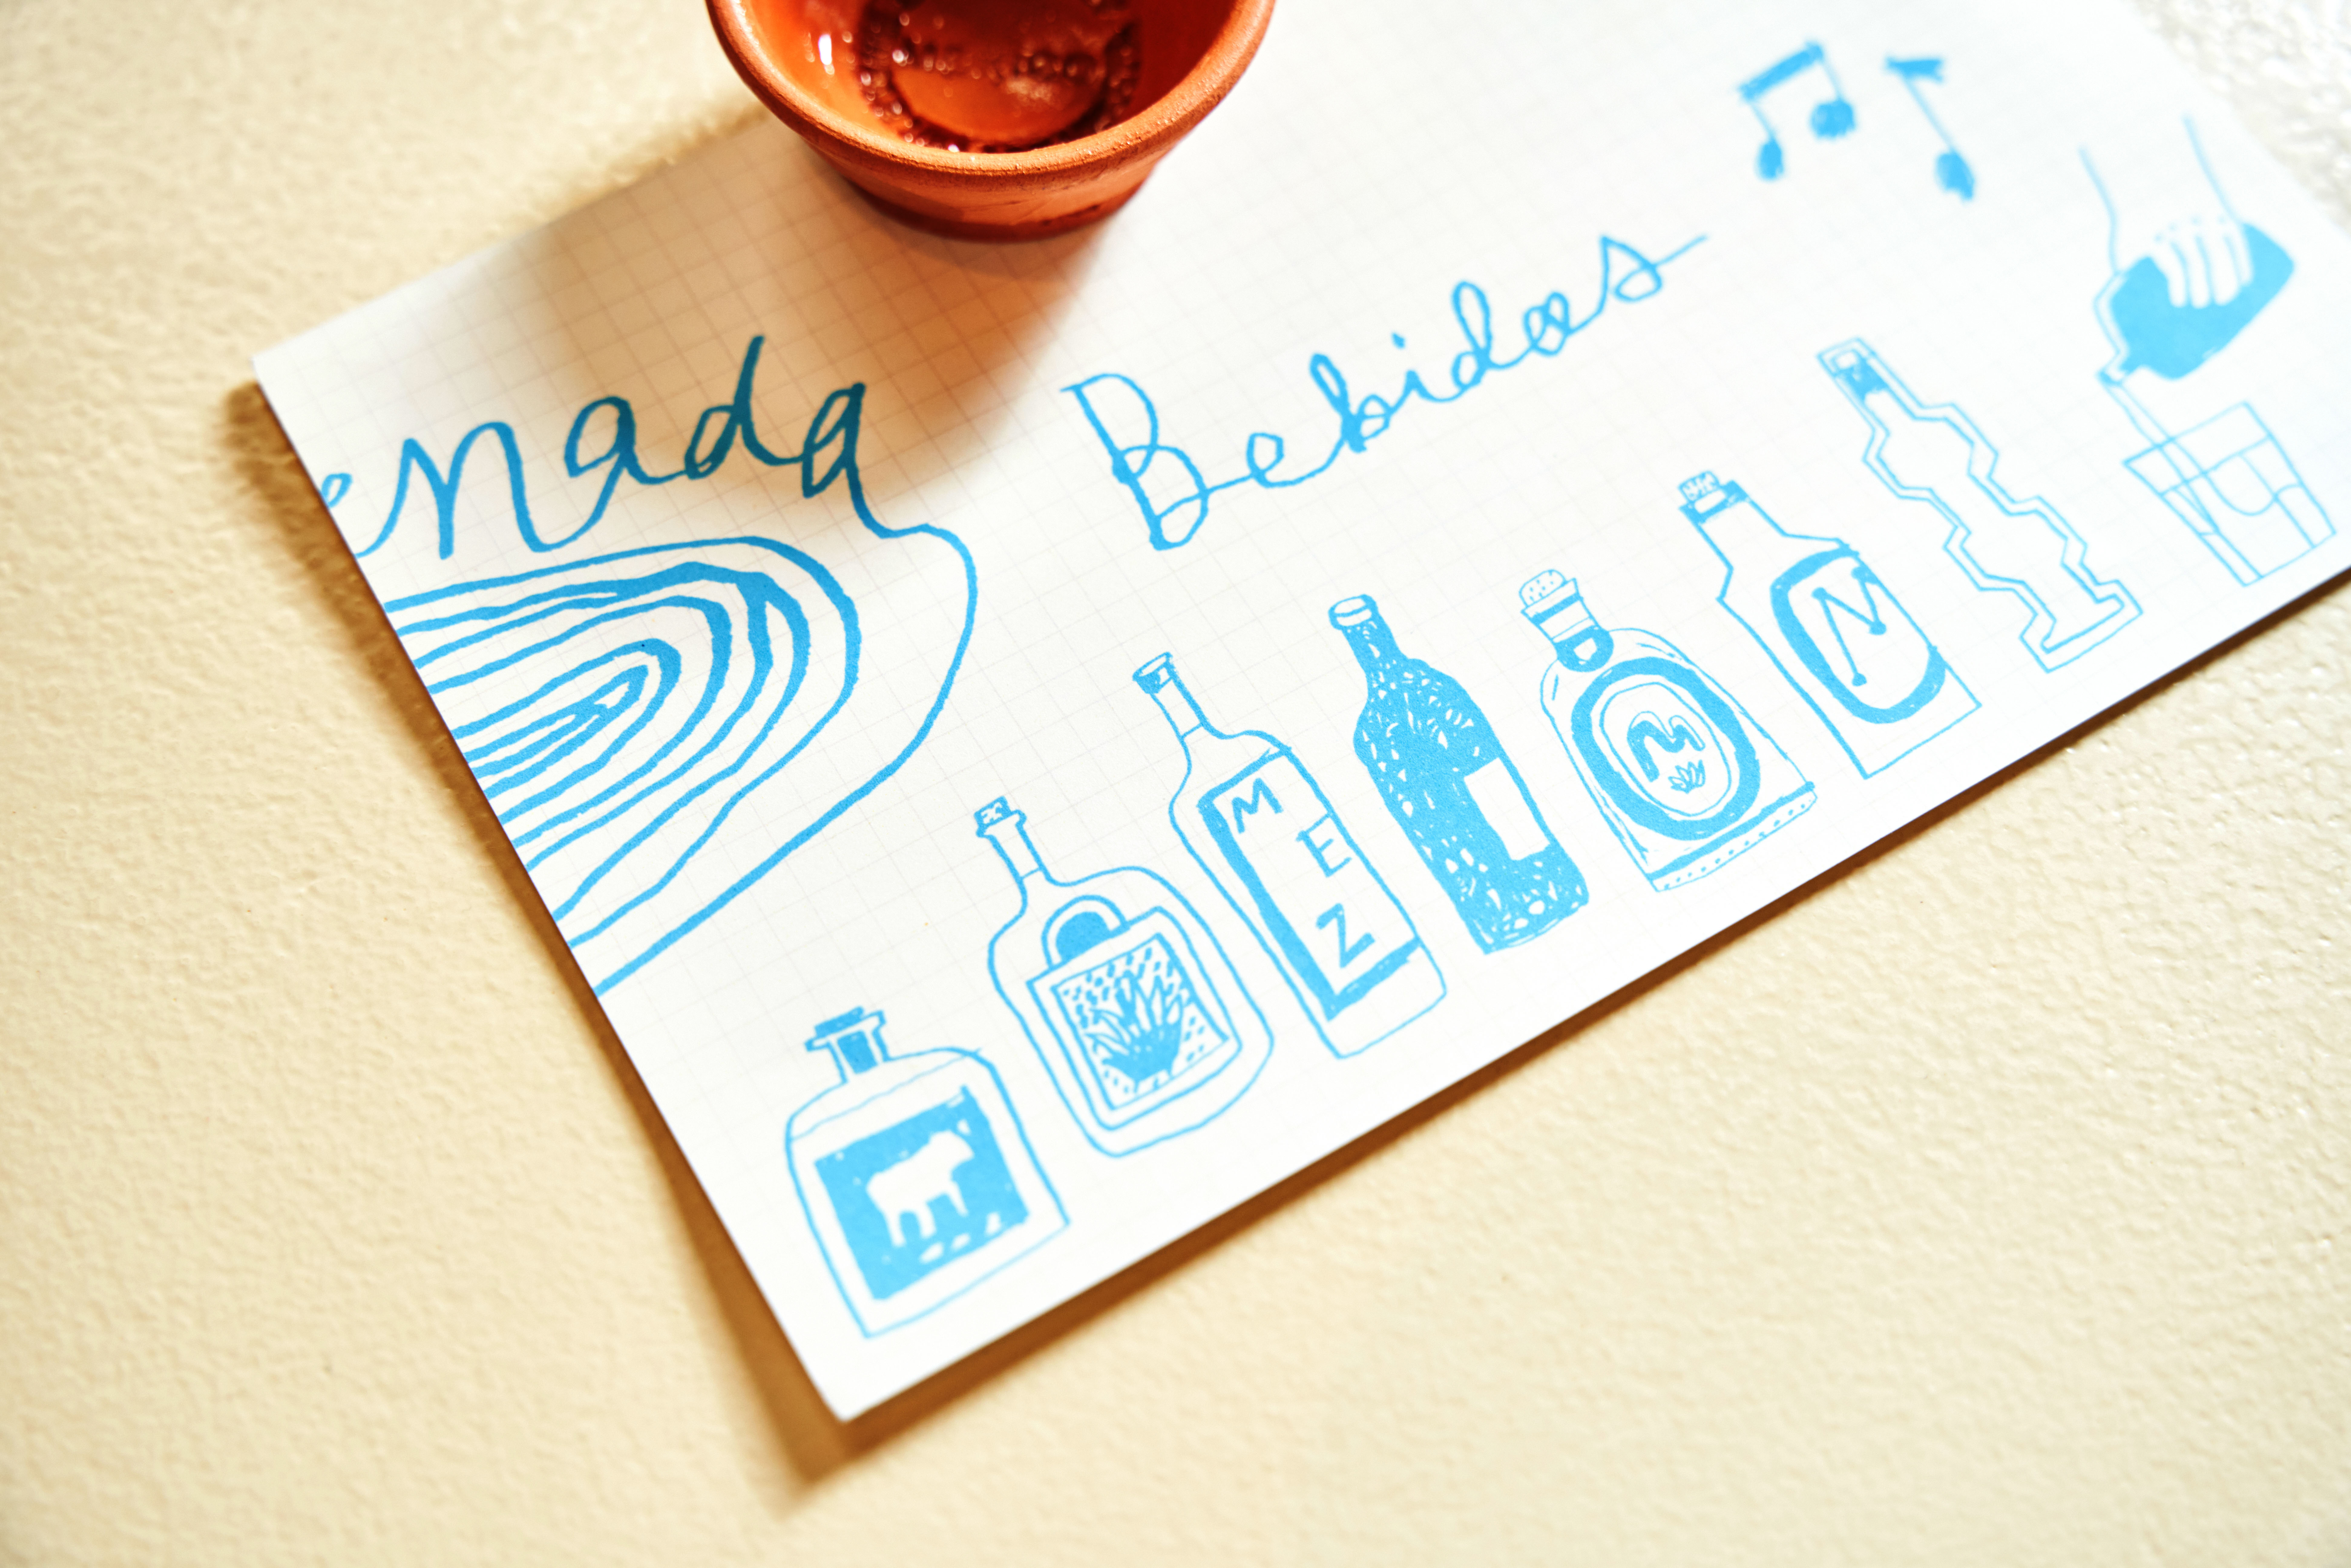 enada
Bebidas
MEZ
M
N